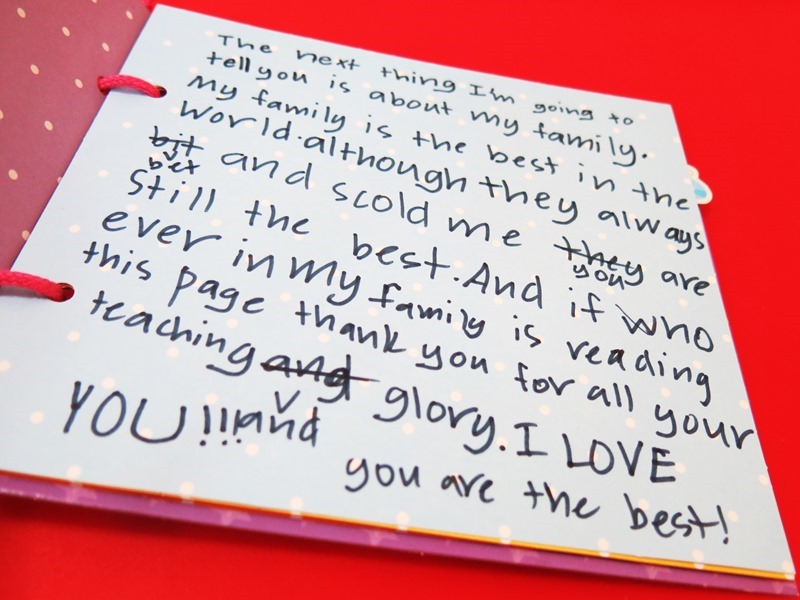 The next thing I'm going to
tell you is about my family.
My family is the best in the
world. although they always
bit and scold me they are
bet you
still the best. And if who
ever in my family is reading
this page thank you for all your
teaching and glory. I LOVE
YOU!!! and
you are the best!